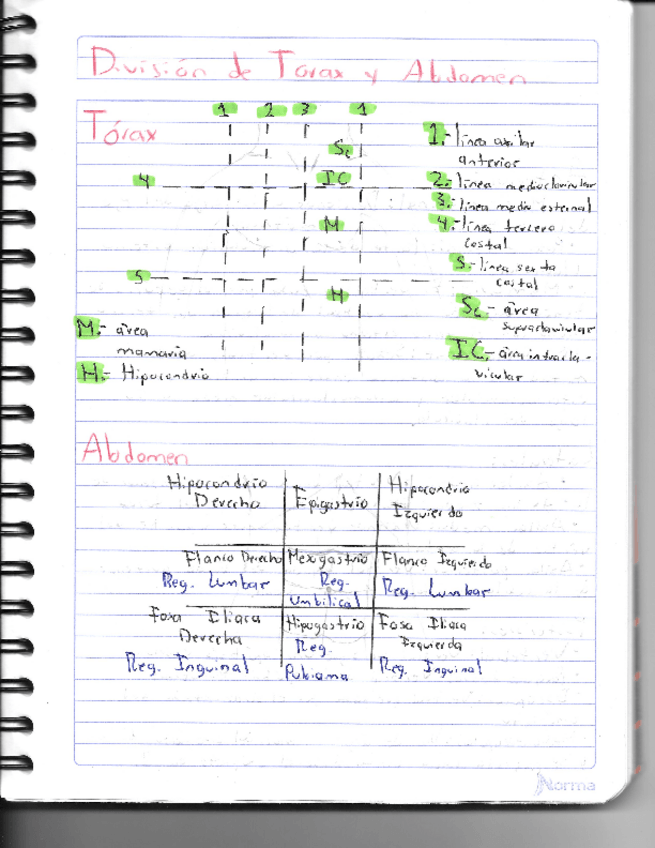 División de Tórax y Abdomen
Tórax
1 2 3 1
Sc
4
IC
M
5
H
1.- línea axilar
anterior
2.- línea medioclavicular
3.- línea medio esternal
4.- línea tercero
costal
5.- línea sexta
costal
Sc.- área
supraclavicular
IC.- área infracla-
vicular
M.- área
mamaria
H.- Hipocondrio
Abdomen
Hipocondrio Derecho
Epigastrio
Hipocondrio Izquierdo
Flanco Derecho
Reg. Lumbar
Mexogastrio
Reg.
Umbilical
Flanco Izquierdo
Reg. Lumbar
Fosa Iliaca
Derecha
Reg. Inguinal
Hipogastrio
Reg.
Pubiana
Fosa Iliaca
Izquierda
Reg. Inguinal
Norma